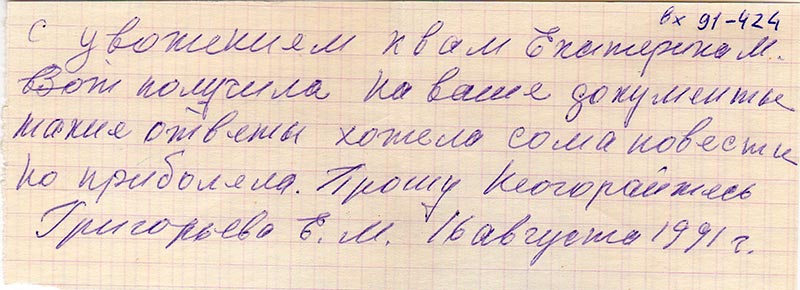 вх 91-424
С увожением к вам Екатерина М.
Вот получила на ваше документы
такие ответы хотела сома повести
но приболела. Прошу Неогорайтесь
Григорьева Е. М. 16 августа 1991 г.